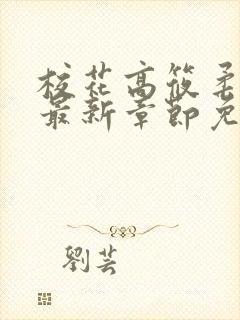 校花高筱柔
最新章節免
劉芸